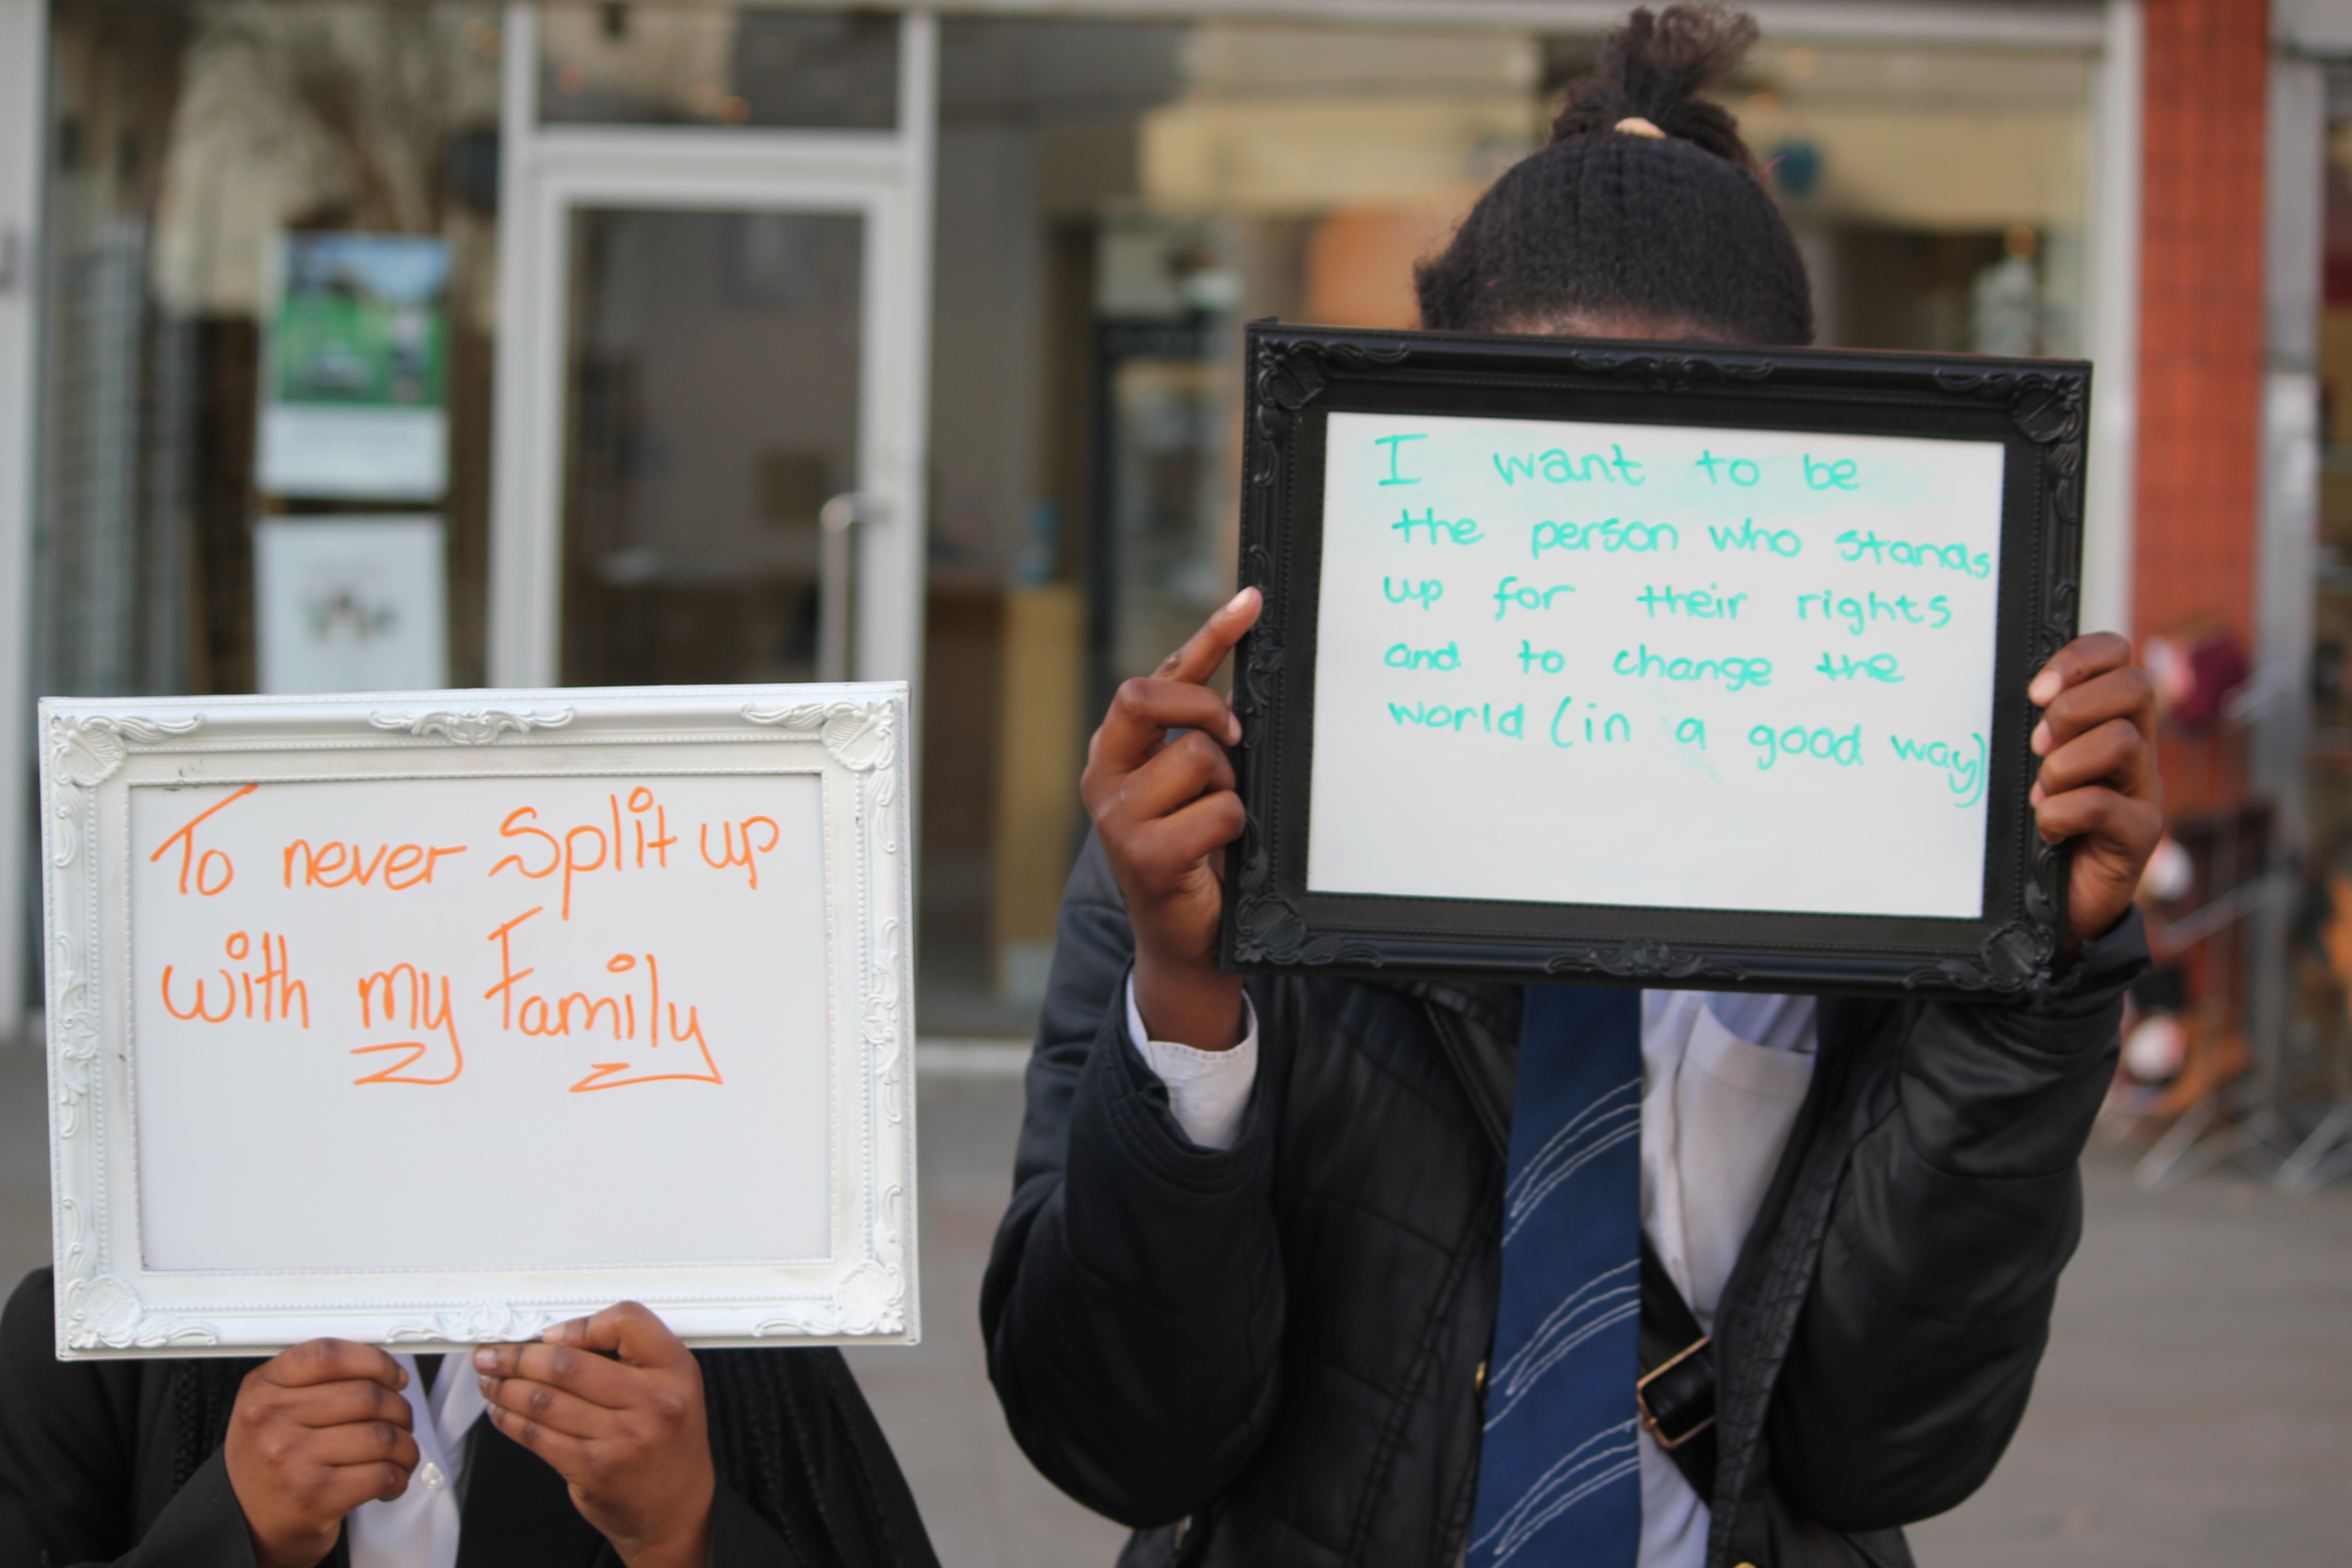 To never Split up
with my Family
I want to be
the person who stands
up for their rights
and to change the
world (in a good way)